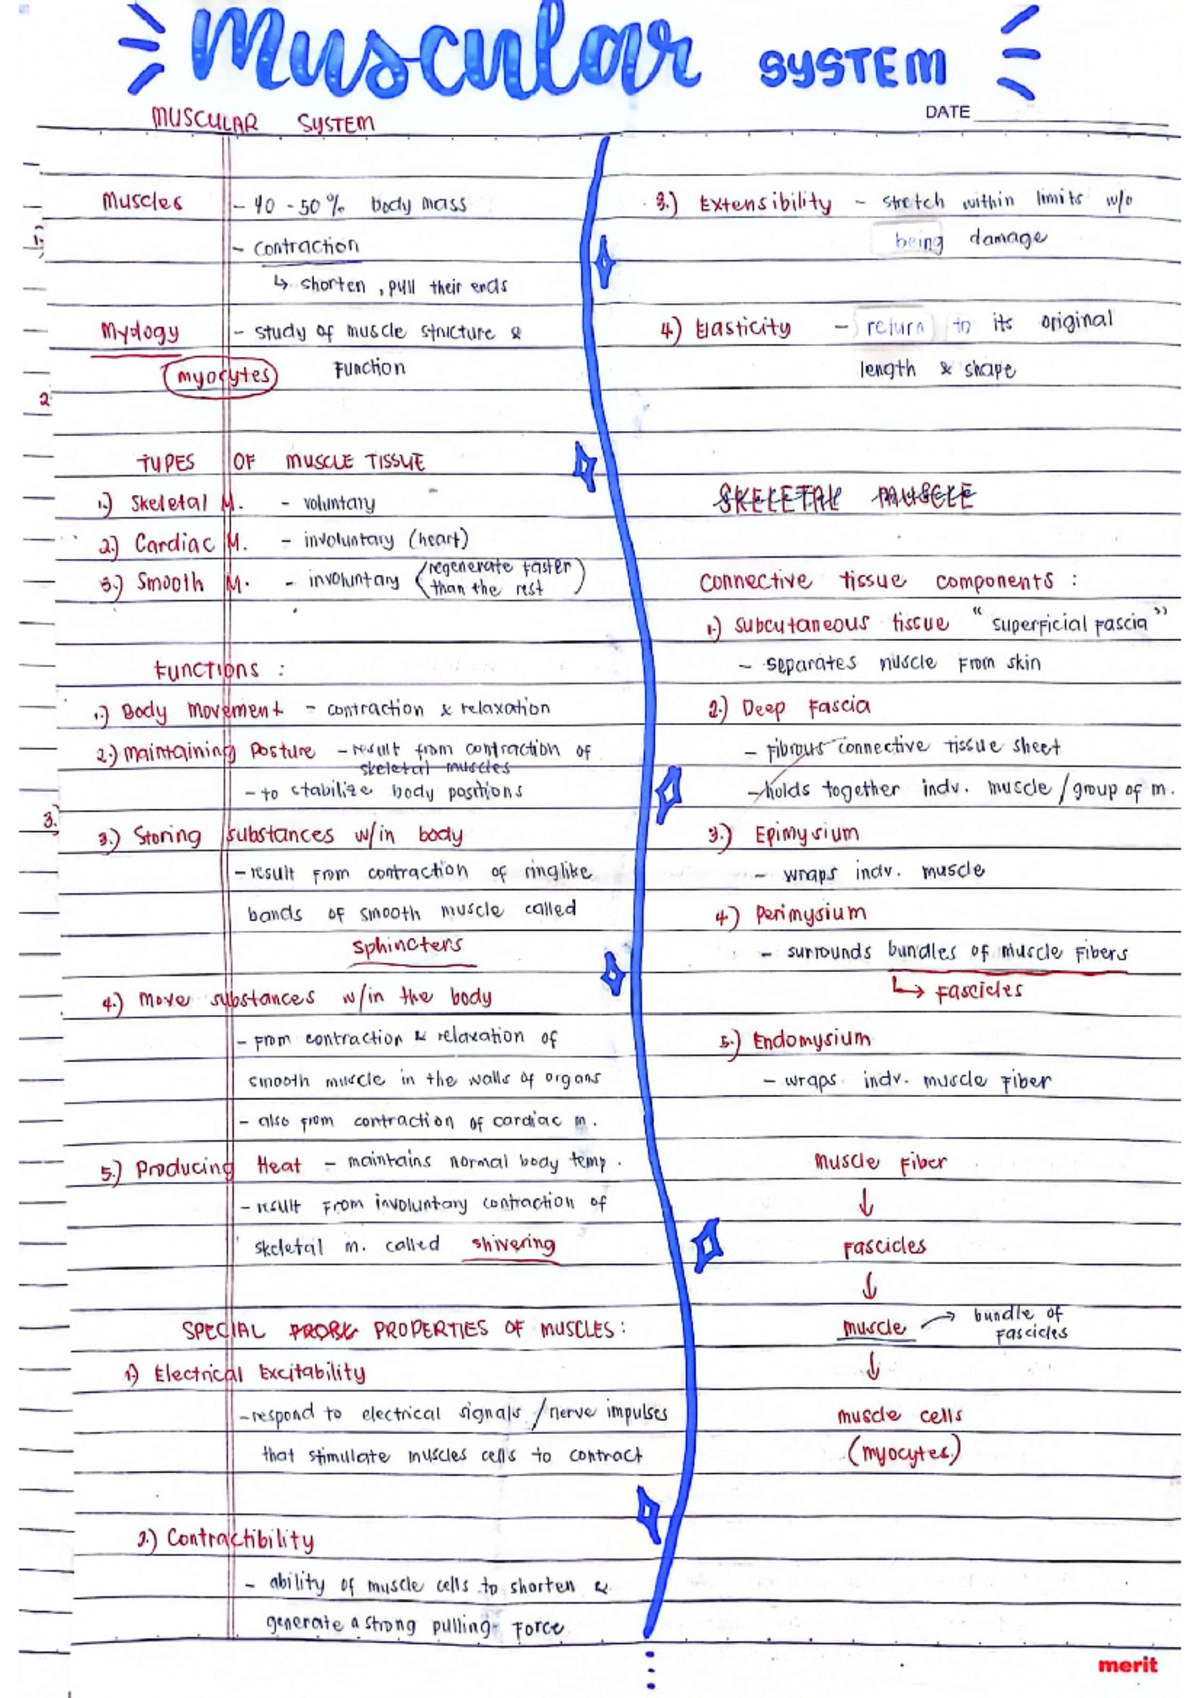 Muscular SYSTEM
MUSCULAR SYSTEM
DATE
Muscles - 40 - 50% body mass
- contraction
↳ shorten, pull their ends
Myology - study of muscle structure &
function
myocytes
TYPES OF MUSCLE TISSUE
1.) Skeletal M. - voluntary
2.) Cardiac M. - involuntary (heart)
3.) Smooth M. - involuntary (regenerate faster
than the rest)
Functions :
1.) Body movement - contraction & relaxation
2.) Maintaining Posture - result from contraction of
skeletal muscles
- to stabilize body positions
3.) Storing substances w/in body
- result from contraction of ringlike
bands of smooth muscle called
sphincters
4.) Move substances w/in the body
- from contraction & relaxation of
smooth muscle in the walls of organs
- also from contraction of cardiac m.
5.) Producing Heat - maintains normal body temp.
- result from involuntary contraction of
skeletal m. called shivering
SPECIAL PROPERTIES OF MUSCLES :
1) Electrical Excitability
- respond to electrical signals / nerve impulses
that stimulate muscles cells to contract
2.) Contractibility
- ability of muscle cells to shorten &
generate a strong pulling force
3.) Extensibility - stretch within limits w/o
being damage
4) Elasticity - return to its original
length & shape
SKELETAL MUSCLE
Connective tissue components :
1.) subcutaneous tissue "superficial fascia"
- separates muscle from skin
2.) Deep fascia
- fibrous connective tissue sheet
- holds together indv. muscle / group of m.
3.) Epimysium
- wraps indv. muscle
4) Perimysium
- surrounds bundles of muscle fibers
↳ fascicles
5.) Endomysium
- wraps indv. muscle fiber
Muscle fiber
↓
fascicles
↓
muscle → bundle of
fascicles
↓
muscle cells
(myocytes)
1.
2
3.
merit